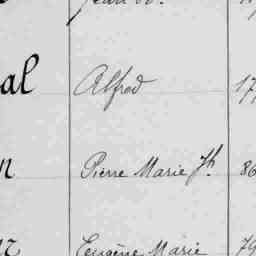 al Alfred 17
n Pierre Marie Jh. 86
Eugène Marie 79